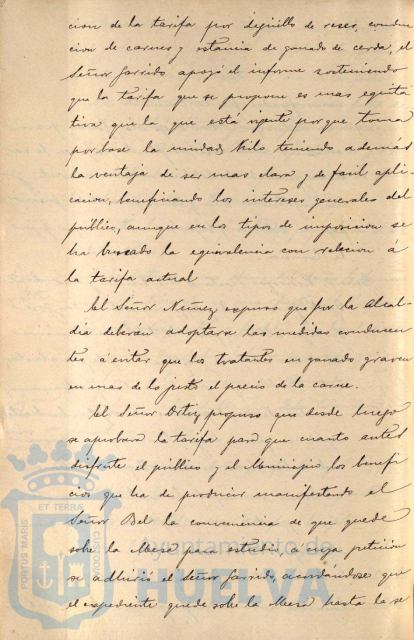 cion de la tarifa por degüello de reses, conduc
cion de carnes y estancia de ganado de cerda, el
Señor Garrido apoyó el informe sosteniendo
que la tarifa que se propone es mas equita
tiva que la que está vigente porque toma
por base la unidad Kilo teniendo además
la ventaja de ser mas clara y de facil apli
cacion, beneficiando los intereses generales del
público, aunque en los tipos de imposicion se
ha buscado la equivalencia con relacion á
la tarifa actual
El Señor Nuñez expuso que por la Alcal
dia deberán adoptarse las medidas conducen
tes á evitar que los tratantes en ganado graven
en mas de lo justo el precio de la carne.
El Señor Ortiz propuso que desde luego
se aprobara la tarifa para que cuanto antes
disfrute el público y el Municipio los benefi
cios que ha de producir manifestando el
Señor Bel la conveniencia de que quede
sobre la Mesa para estudio, a cuya peticion
se adhirió el Señor Garrido, acordandose que
el expediente quede sobre la Mesa hasta la se
PORTUS MARIS
ET TERRA
CUSTODIA
Ayuntamiento de
HUELVA